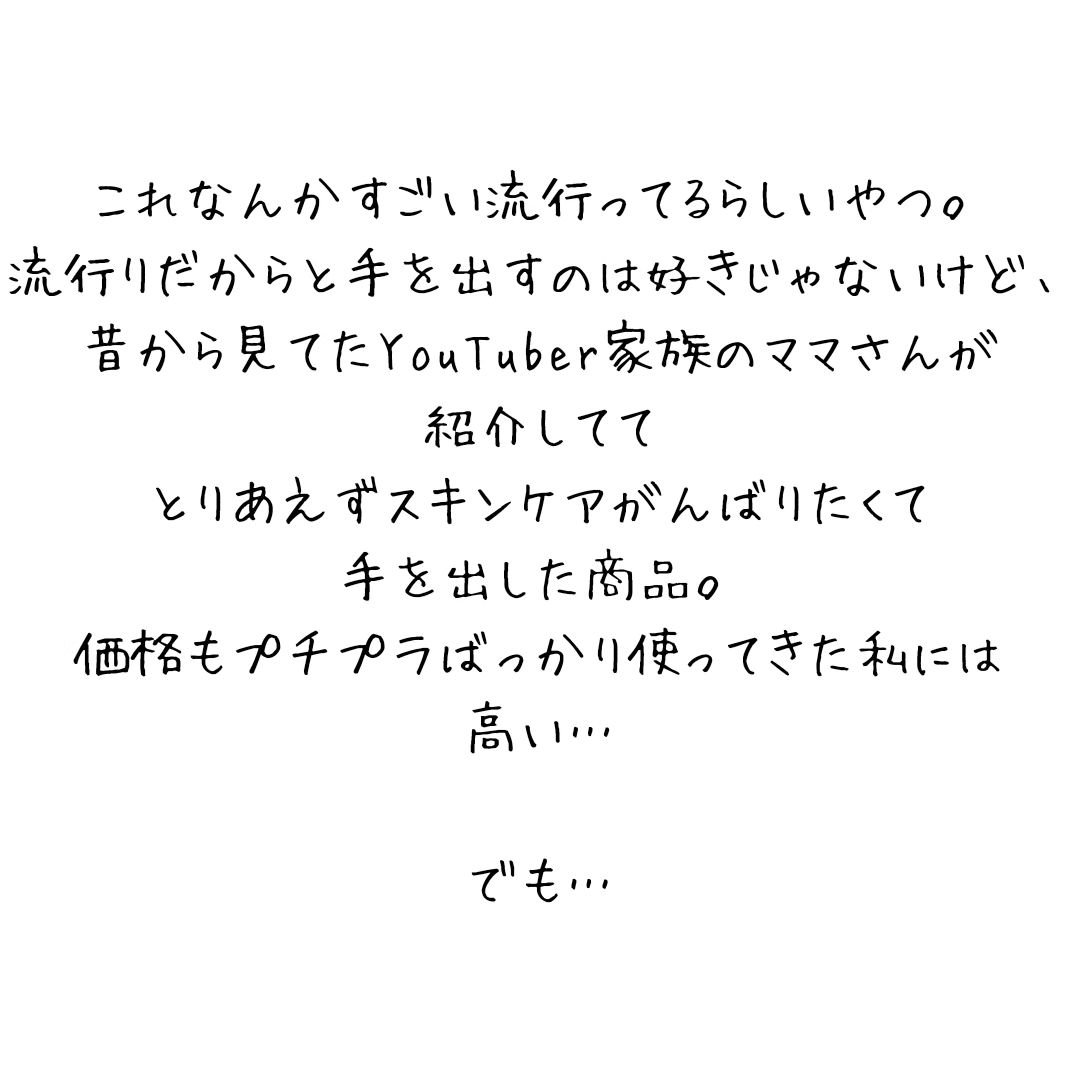 これなんかすごい流行ってるらしいやつ。
流行りだからと手を出すのは好きじゃないけど、
昔から見てたYouTuber家族のママさんが
紹介してて
とりあえずスキンケアがんばりたくて
手を出した商品。
価格もプチプラばっかり使ってきた私には
高い…
でも…